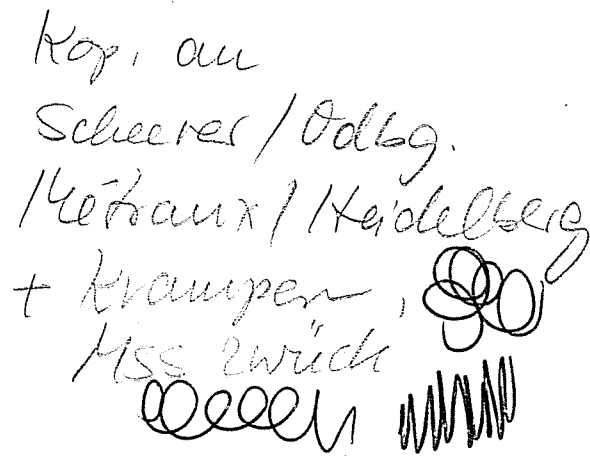 Kop. an
Scheerer / Oldbg.
Métraux / Heidelberg
+ Krampen,
Mss zurück